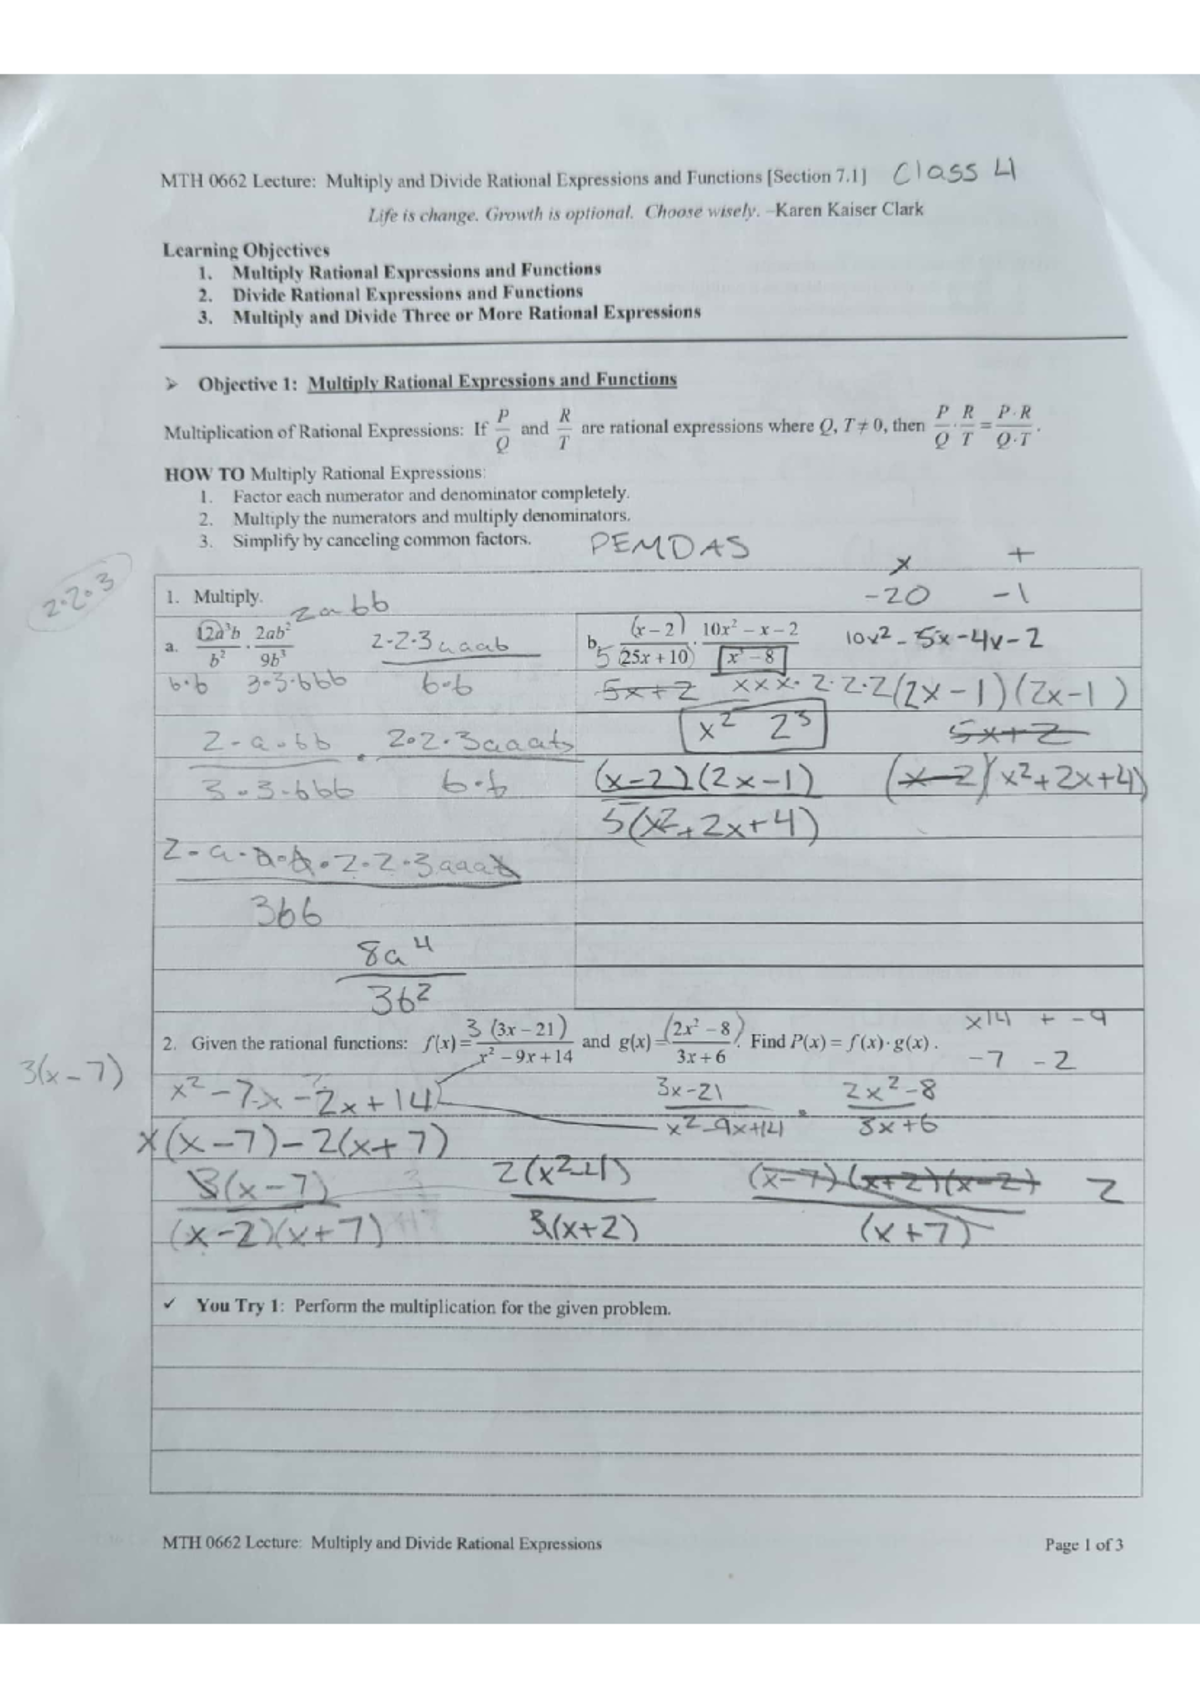 MTH 0662 Lecture: Multiply and Divide Rational Expressions and Functions [Section 7.1] Class 4
Life is change. Growth is optional. Choose wisely. –Karen Kaiser Clark
Learning Objectives
1. Multiply Rational Expressions and Functions
2. Divide Rational Expressions and Functions
3. Multiply and Divide Three or More Rational Expressions
➢ Objective 1: Multiply Rational Expressions and Functions
Multiplication of Rational Expressions: If P/Q and R/T are rational expressions where Q, T ≠ 0, then P/Q · R/T = P·R/Q·T.
HOW TO Multiply Rational Expressions:
1. Factor each numerator and denominator completely.
2. Multiply the numerators and multiply denominators.
3. Simplify by canceling common factors.
PEMDAS
x +
2·2·3
1. Multiply.
2abb
-20 -1
a. 12a³b/b² · 2ab²/9b³
2-2-3aaab
b·b 3·3·bbb b·b
b. (x – 2)/5(25x + 10) · 10x² – x – 2/x³ – 8
10x² - 5x - 4x - 2
5x+2 xxx· 2·2·2 (2x - 1)(2x-1)
2-a·bb · 2·2·3aaab
3·3·bbb b·b
x² 2³
5x+2
(x-2)(2x-1)
5(x²+2x+4)
(x-2)(x²+2x+4)
2-a·b·b·2·2·3aaab
3bb
8a⁴
3b²
2. Given the rational functions: f(x)= 3 (3x – 21)/x² – 9x + 14 and g(x)= (2x² – 8)/3x + 6. Find P(x) = f(x)·g(x).
x14 + -9
-7 -2
3(x-7)
x² - 7x - 2x + 14
3x-21/x²-9x+14 · 2x²-8/3x+6
x(x-7)-2(x+7)
3(x-7)
(x-2)(x+7)
2(x²-4)
3(x+2)
(x-7)(x+2)(x-2) 2
(x+7)
✓ You Try 1: Perform the multiplication for the given problem.
MTH 0662 Lecture: Multiply and Divide Rational Expressions
Page 1 of 3